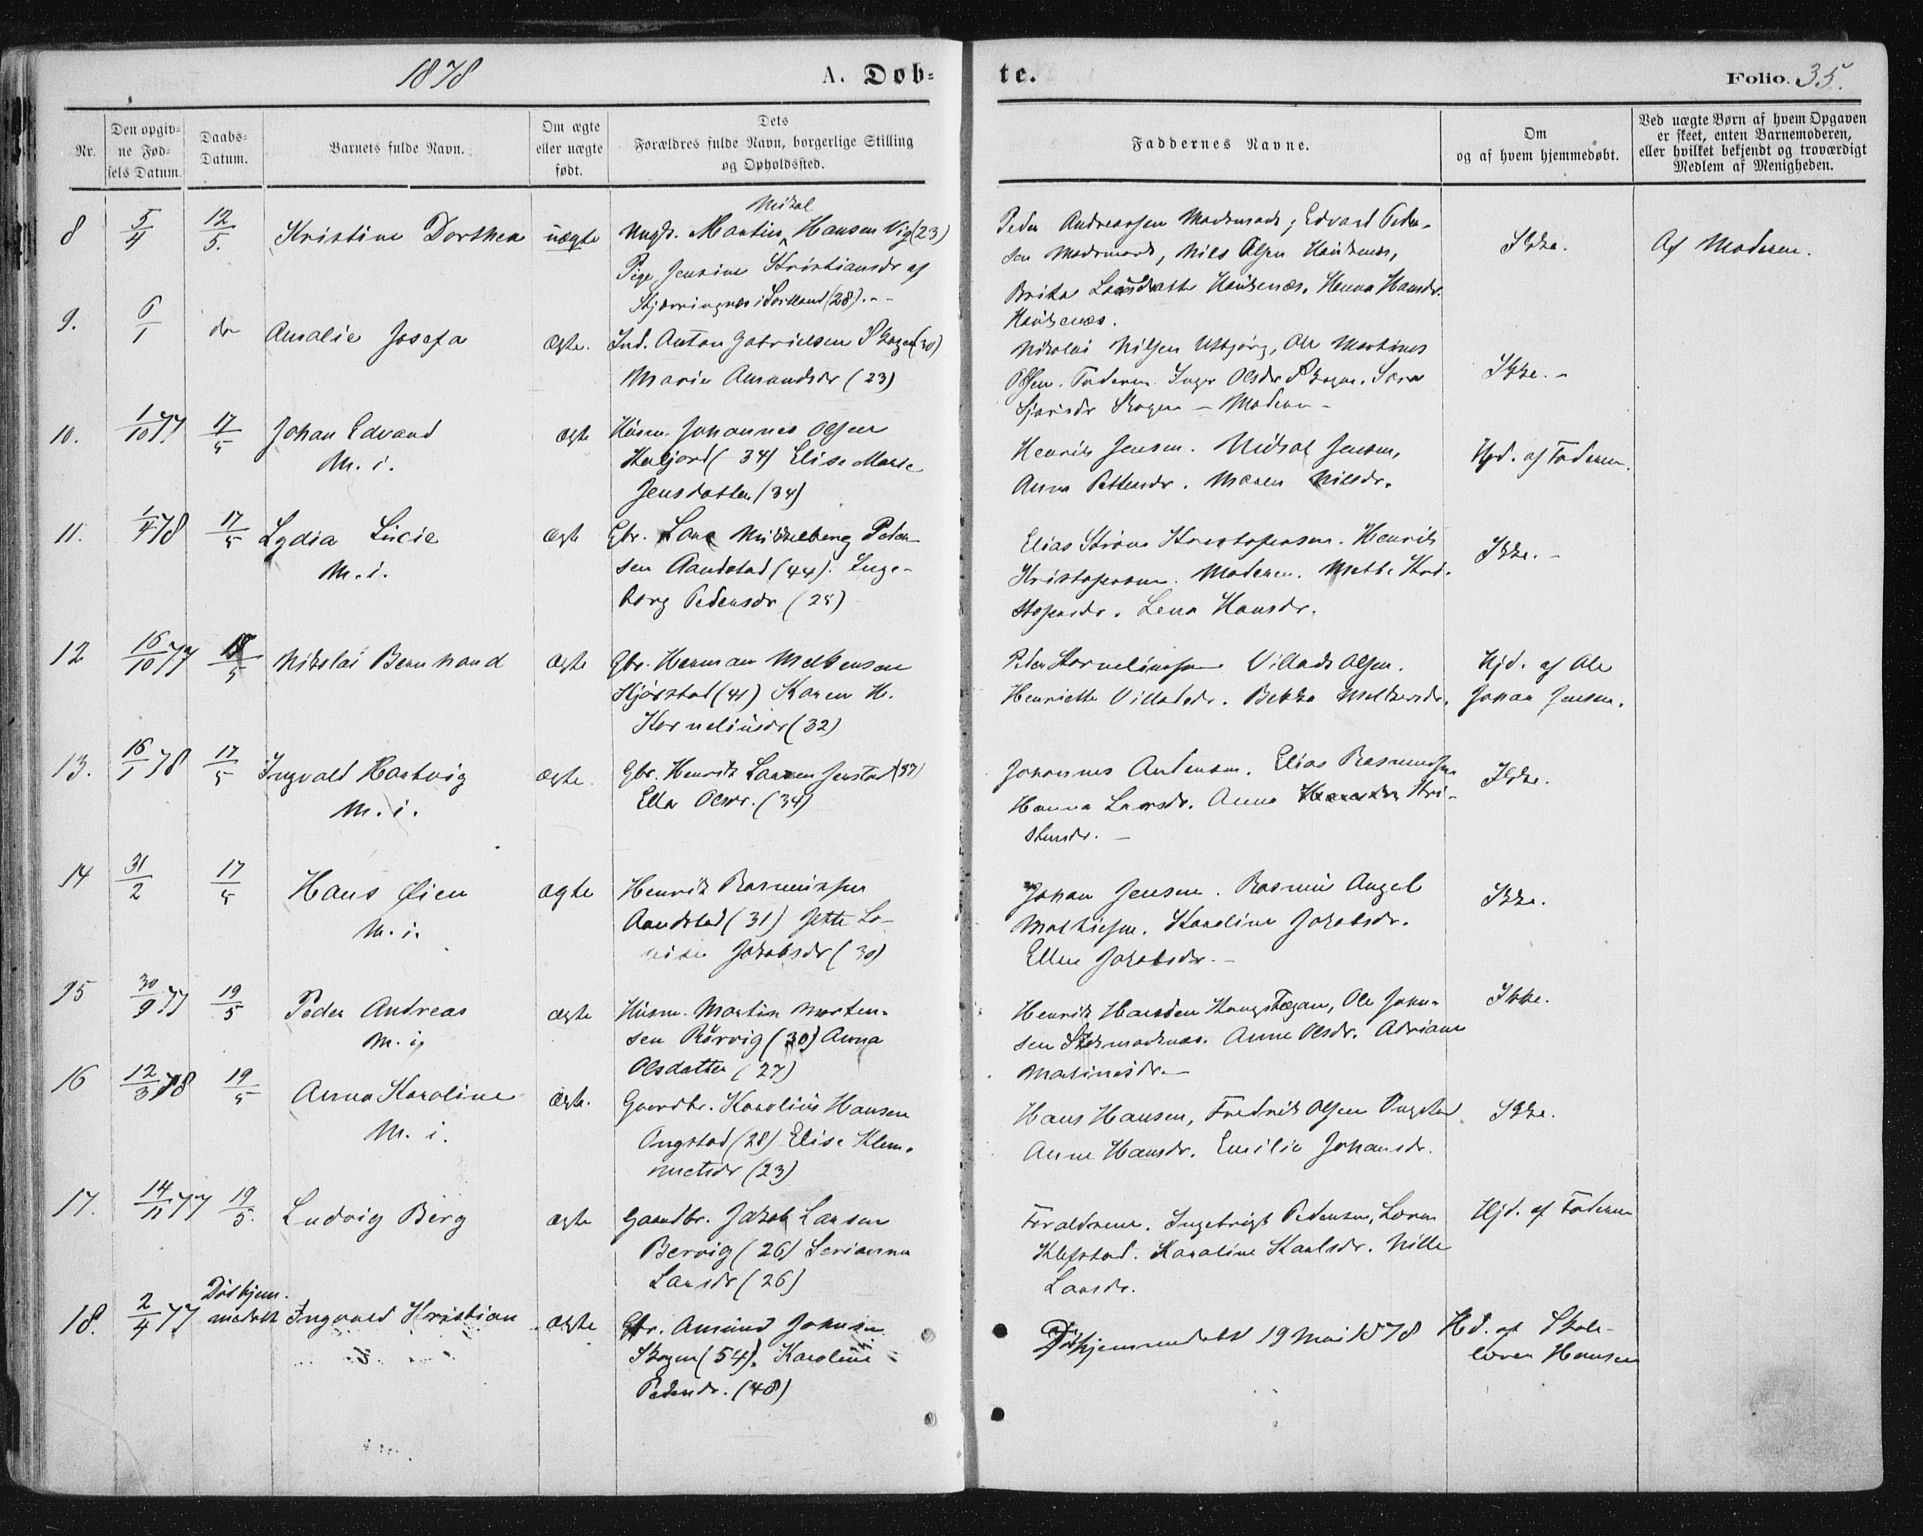 1878
A. Døb-
te.
Folio. 35.
Nr.
Den opgiv-
ne Fød-
sels Datum.
Daabs-
Datum.
Barnets fulde Navn.
Om ægte
eller uægte
født.
Dets
Forældres fulde Navn, borgerlige Stilling
og Opholdssted.
Faddernes Navne.
Om
og af hvem hjemmedøbt.
Ved uægte Børn af hvem Opgaven
er skeet, enten Barnemoderen,
eller hvilket bekjendt og troværdigt
Medlem af Menigheden.
8 5/4 12/5. Kristine Dorthea uægte Ungk. Martin Mikal Hansen Vig (23)
Pige Jensine Kristiansdr af
i Sortland (28). --
Peder Andreassen Edvard Peder-
sen Nils Olsen
Brita Hanna Hansdr.
Ikke.
Af Moderen.
9. 6/1 do Amalie Josefa Ægte. Ind. Anton Gabrielsen Skogen (30)
Marie Amundsdr (23)
Nikolai Nilsen Ole Martinus
Olsen. Faderen. Inger Olsdr Skogen. Sara
Skogen - Moderen -
Ikke. -
10. 1/10 77 17/5 Johan Edvard ægte Husm. Johannes Olsen
M. i. (34) Elise Marie
Jensdatter (34)
Henrik Jensen. Mikal Jensen,
Anna Pettersdr. Maren Nilsdr.
Hjd. af Faderen.
11. 1/4 78 17/5 Lydia Lucie ægte Gbr. Lars Mikkelberg Peder-
M. i. sen Aandstad (44). Inge-
borg Pedersdr (25)
Elias Kristofersen. Henrik
Kristofersen. Moderen. Mette Kri-
stofersdr. Lena Hansdr.
Ikke. -
12 16/10 77 18/5 Nikolai Bernhard ægte Gbr. Herman Melkersen
(41) Karen H.
Korneliusdr (32)
Peder Korneliussen Villads Olsen.
Henriette Villadsdr. Melkersdr.
Hjd. af Ole
Johan Jensen.
13. 16/1 78 17/5 Ingvald Hartvig ægte. Gbr. Henrik Larsen Jenstad (37)
M. i. Ella Olsdr. (34)
Johannes Andersen. Elias Rasmussen
Hanna Larsdr. Anna Kri-
stensdr. -
Ikke.
14 31/2 17/5 Hans Øien ægte Henrik Rasmussen
M. i. Aandstad (31) Jette Lo-
vise Jakobsdr (30)
Johan Jensen. Rasmus Angel
Mathiesen. Karoline Jakobsdr.
Ellen Jakobsdr. -
Ikke.
15 30/9 77 19/5 Peder Andreas ægte Husm. Martin Morten-
M. i. sen Rørvig (30) Anna
Olsdatter (27)
Henrik Ole Johan-
sen Anne Olsdr. Adriane
Martinusdr. -
Ikke.
16 12/3 78 19/5 Anna Karoline ægte. Gaardbr. Karolius Hansen
M. i. Ongstad (28) Elise Klem-
metsdr (23)
Hans Hansen, Fredrik Olsen Ongstad
Anne Hansdr. Emilie Johansdr.
Ikke.
17. 14/11 77 19/5. Ludvig Berg ægte Gaardbr. Jakob Larsen
Bervig (26) Serianna
Larsdr (26)
Forældrene. Ingebrigt Pedersen,
Klefstad. Karoline Karlsdr. Nille
Larsdr.
Hjd. af Faderen
18. 2/4 77 Dødhjem-
medøbt Ingvald Kristian ægte Gbr. Amund Johnsen
Skogen (54). Karoline
Pedersdr. (48)
19 Mai 1878
Hd. af Skole-
lærer Hansen